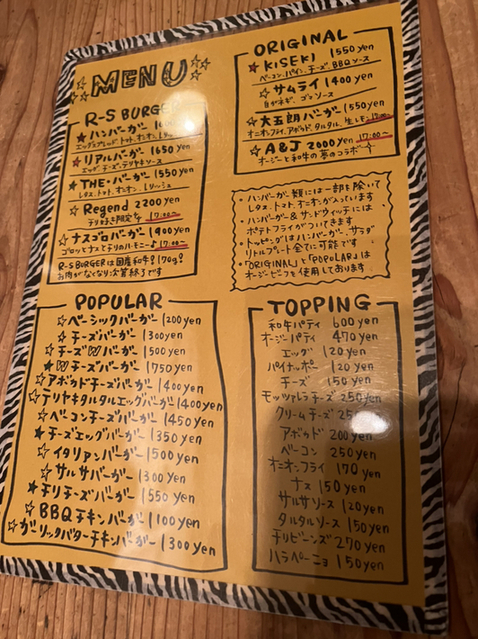 MENU
R-S BURGER
☆ハンバーガー
★リアルバーガー 1650 yen
エッグ、チーズ、テリヤキソース
☆THE・バーガー 1500 yen
レタス、トマト、オニオン、
☆Regend 2200 yen
17:00〜
☆ナスゴロバーガー 1400 yen
ゴロッとナスとテリのハーモニー♪ 17:00〜
R-S BURGERは国産和牛170g!
お肉がなくなり次第終了です
ORIGINAL
☆KISEKI 1550 yen
ベーコン、パイン、チーズ、BBQソース
☆サムライ 1400 yen
白ガネギ、ゴマソース
★大五郎バーガー 1550 yen
オニオンフライ、アボカド、タルタル、生レモン 17:00〜
☆A&J 2000 yen 17:00〜
オージーと和牛の夢のコラボ
・ハンバーガー類には一部を除いて
レタス、トマト、オニオンが入っています
・ハンバーガー&サンドウィッチには
ポテトフライがついてきます
・トッピングはハンバーガー、サラダ
リトルプレート全てに可能です
・「ORIGINAL」と「POPULAR」は
オージービーフを使用しております
POPULAR
☆ベーシックバーガー 1200 yen
☆チーズバーガー 1300 yen
☆チーズWバーガー 1500 yen
★Wチーズバーガー 1750 yen
☆アボカドチーズバーガー 1400 yen
☆テリヤキタルタルエッグバーガー 1400 yen
☆ベーコンチーズバーガー 1450 yen
★チーズエッグバーガー 1350 yen
☆イタリアンバーガー 1500 yen
☆サルサバーガー 1300 yen
★チリチーズバーガー 1550 yen
☆BBQチキンバーガー 1100 yen
☆ガーリックバターチキンバーガー 1300 yen
TOPPING
和牛パティ 600 yen
オージーパティ 470 yen
エッグ 120 yen
パイナップル 120 yen
チーズ 150 yen
モッツァレラチーズ 250 yen
クリームチーズ 250
アボカド 200 yen
ベーコン 250 yen
オニオンフライ 170 yen
ナス 150 yen
サルサソース 120 yen
タルタルソース 150 yen
チリビーンズ 270 yen
ハラペーニョ 150 yen